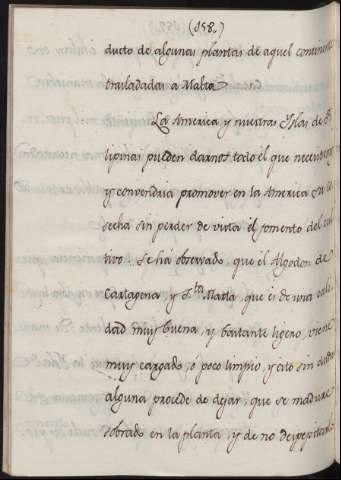 (158.)
ducto de algunas plantas de aquel continente
trasladadas a Malta.
La America y nuestras Yslas de Fi
lipinas pueden darnos todo el que necesitemos
y convendria promover en la America su co
secha sin perder de vista el fomento del cul
tivo. Se há observado que el Algodon de
Cartagena y S.ta Marta, que es de una cali
dad muy buena, y bastante ligero, viene
muy cargado, ó poco limpio, y esto sin duda
alguna procede de dejar, que se madure
sobrado en la planta, y de no despepitarlo